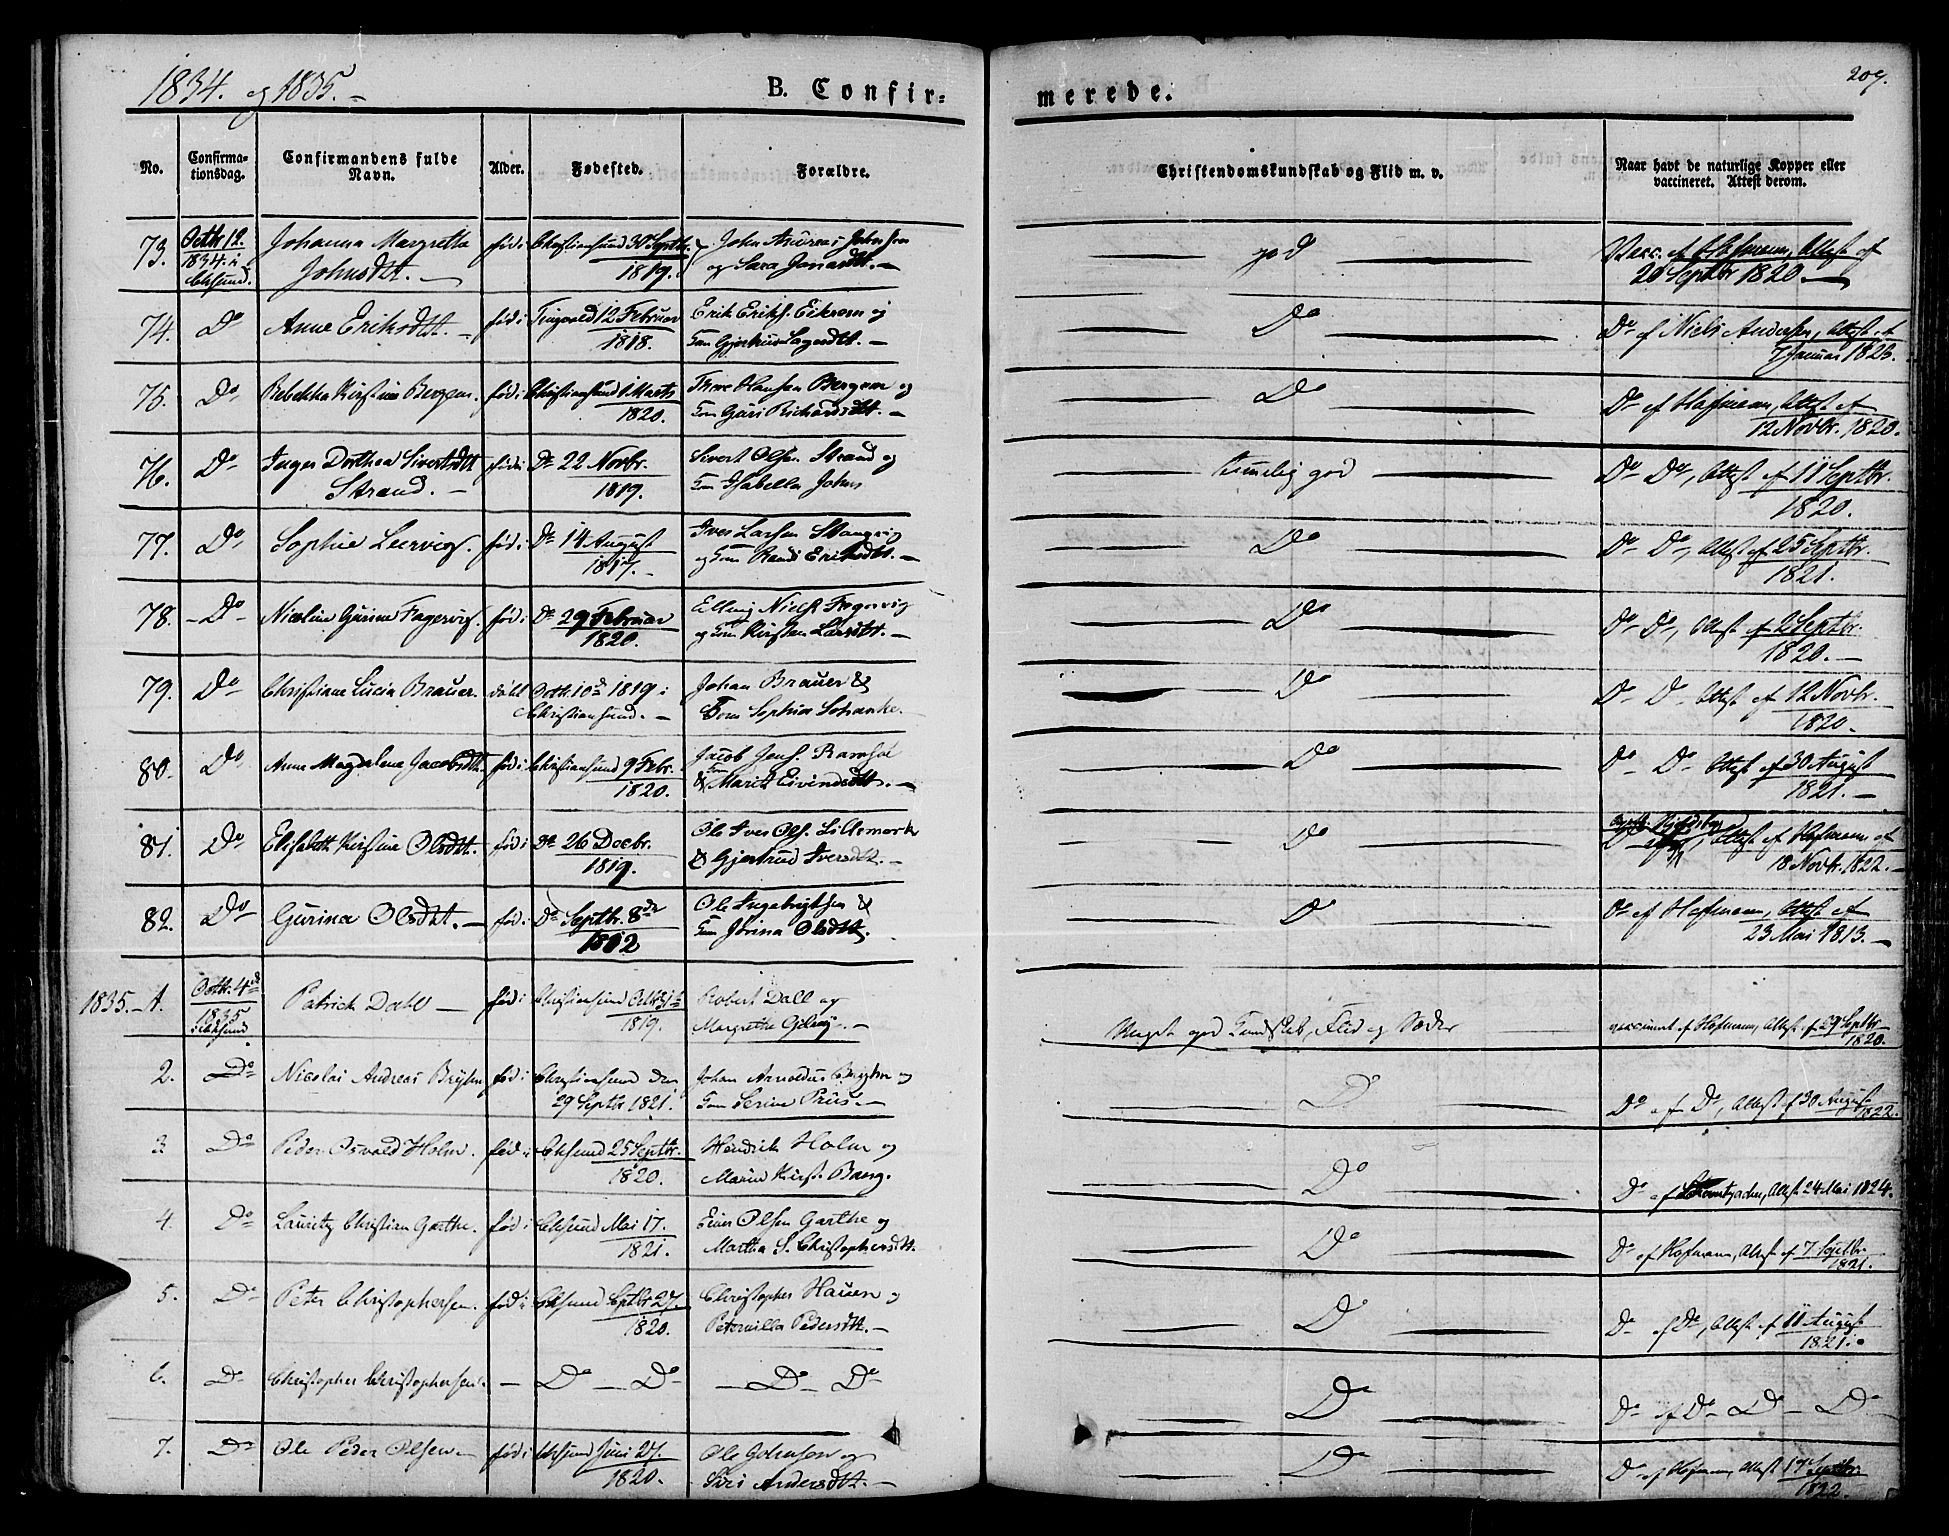 1834. og 1835.
B. Confirmerede.
209.
No.
Confirmationsdag.
Confirmandens fulde Navn.
Alder.
Fødested.
Forældre.
Christendomskundskab og Flid m. v.
Naar havt de naturlige Kopper eller vaccineret. Attest derom.
73. Octbr 12. 1834 i Chsund. Johanna Margretha Johnsdtt. fød i Christiansund 30 Septbr. 1819. John Andreas Johnsen og Sara Jonasdtt. god Vacc. af Hofmann, Attest af 20 Septbr 1820.
74. Do Anne Eriksdtt. fød i Tingvold 12 Februar 1818. Erik Eriks. Eikrem og Gjertrud Do Do af Niels Andersen, Attest af 7 Januar 1823.
75. Do Rebekka Kirstine Bergem. fød i Christiansund 1 Marts 1820. Hansen Bergem og Guri Richardsdtt. Do Do af Hofmann, Attest af 12 Novbr. 1820.
76. Do Inger Dorthea Sivertsdtt Strand. fød i Do 22 Novbr. 1819. Sivert Olsen Strand og Isabella Johns temmelig god Do Do, Attest af 11 Septbr. 1820.
77. Do Sophie Leervig. fød i Do 14 August 1817. Iver Larsen Stangvig og Randi Eriksdtt. Do Do Do, Attest af 25 Septbr. 1821.
78. Do Nicoline Gurine Fagervig. fød i Do 29 Februar 1820. Elling Niels. Fagervig og Kirsten Larsdtt. Do Do Do, Attest af 2 Septbr. 1820.
79. Do Christiane Lucia Brauer. døbt Octbr. 10de 1819 i Christiansund. Johan Brauer & Sophia Do Do Do Attest af 12 Novbr. 1820.
80. Do Anne Magdalene Jacobsdtt. fød i Christiansund 9 Febr. 1820. Jacob Jens. Ramsøe & Marit Eivindsdtt. Do Do Do Attest af 30 August 1821.
81. Do Elisabeth Kirstine Olsdtt. fød i Do 26 Decbr. 1819. Ole Iver Ols. Lillemork & Gjertrud Iversdtt. Do Attest af Hofmann af 18 Novbr. 1822.
82. Do Gurina Olsdtt. fød i Do Septbr. 8de 1802 Ole Ingebrigtsen & Jorina Olsdtt. Do Do af Hofmann, Attest af 23 Mai 1813.
1835. 1. Octbr. 4de 1835 i Chsund Patrick Dahl fød i Christiansund 1819. Robert Dall og Margrethe Meget god Kundskab, Flid og Sæder vaccineret af Hofmann, Attest af 29 Septbr 1820.
2. Do Nicolai Andreas Bryhn fød i Christiansund den 29 Septbr 1821. Johan Arnoldus Bryhn og Serine Prius. Do Do af Do, Attest af 30 August 1822.
3. Do Peder Osvald Holm. fød i Chsund 25 Septbr. 1820. Hendrik Holm og Maren Kirst. Baug. Do Do af Attest 24 Mai 1824.
4. Do Lauritz Christian Garthe. fød i Chsund Mai 17. 1821. Einer Olsen Garthe og Martha S. Christophersdtt. Do Do af Hofmann, Attest af 7 Septbr. 1821.
5. Do Peter Christophersen. fød i Chsund Sptbr 27. 1820. Christopher Hauen og Peternilla Pedersdtt. Do Do af Do, Attest af 11 August 1821.
6. Do Christopher Christophersen. Do Do Do Do Do Do af Do Do Do
7. Do Ole Peder Olsen fød i Chsund Juni 27. 1820. Ole Johnsen og Siri Andersdtt. Do Do af Hofmann, Attest 17 Septbr. 1822.